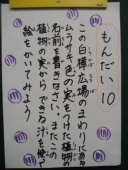 もんだい10
この白樺広場のまわりにある
ムラサキ色の実をつけた植物の
名前を書きなさい。またこの
植物の実からできる汁を使
絵をかいてみよう